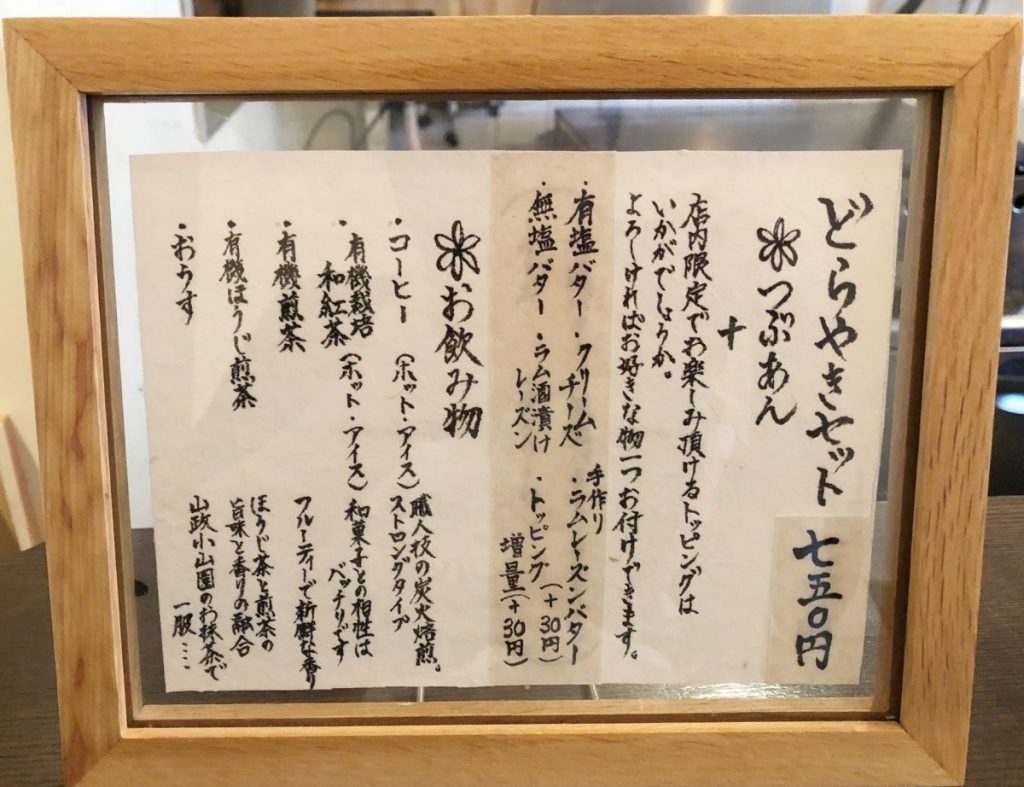 どらやきセット 七五〇円
つぶあん
+
店内限定でお楽しみ頂けるトッピングは
いかがでしょうか。
よろしければお好きな物一つお付けできます。
・有塩バター ・クリームチーズ ・手作りラムレーズンバター(+30円)
・無塩バター ・ラム酒漬けレーズン ・トッピング増量(+30円)
お飲み物
・コーヒー (ホット・アイス) 職人技の炭火焙煎。
ストロングタイプ
・有機栽培
和紅茶 (ホット・アイス) 和菓子との相性は
バッチリです
・有機煎茶 フルーティーで新鮮な香り
・有機ほうじ煎茶 ほうじ茶と煎茶の
旨味と香りの融合
・おうす 山政小山園のお抹茶で
一服….